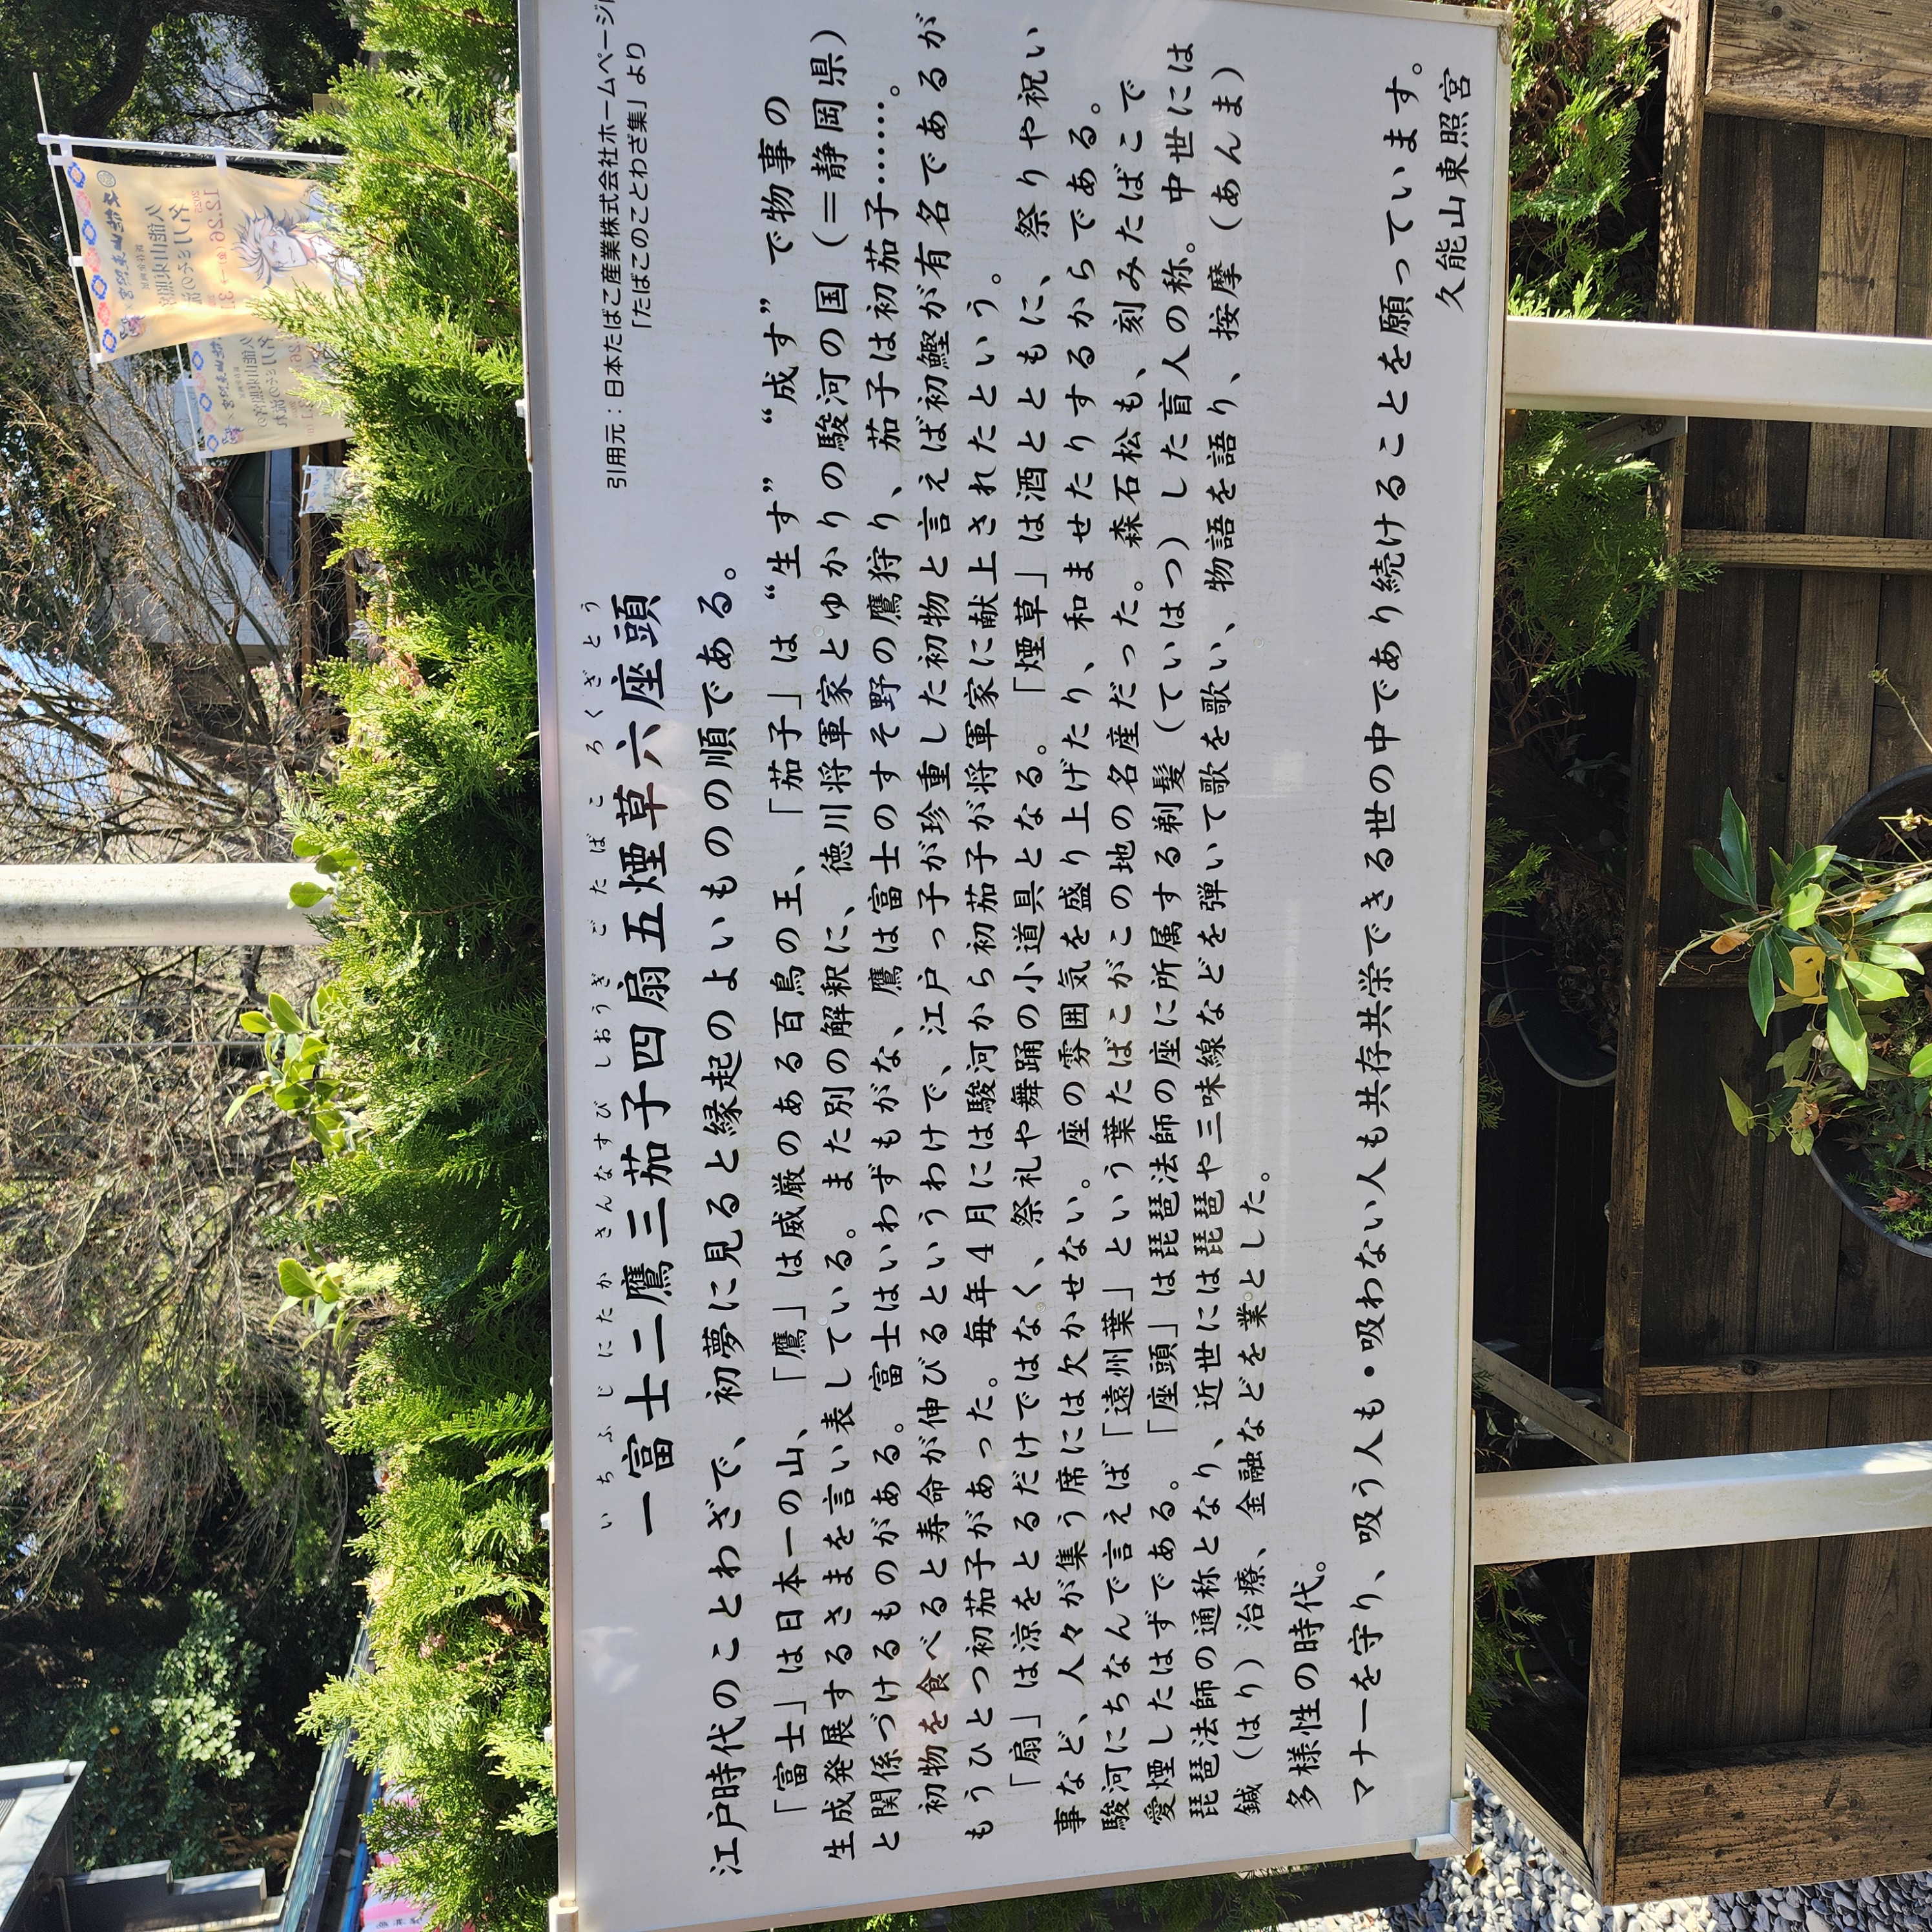 引用元：日本たばこ産業株式会社ホームページ
「たばこのことわざ集」より
いちふじにたかさんなすびしおうぎごたばころくざとう
一富士二鷹三茄子四扇五煙草六座頭
江戸時代のことわざで、初夢に見ると縁起のよいものの順である。
「富士」は日本一の山、「鷹」は威厳のある百鳥の王、「茄子」は“生す”“成す”で物事の
生成発展するさまを言い表している。また別の解釈に、徳川将軍家とゆかりの駿河の国（＝静岡県）
と関係づけるものがある。富士はいわずもがな、鷹は富士のすそ野の鷹狩り、茄子は初茄子………。
初物を食べると寿命が伸びるというわけで、江戸っ子が珍重した初物と言えば初鰹が有名であるが
もうひとつ初茄子があった。毎年4月には駿河から初茄子が将軍家に献上されたという。
「扇」は涼をとるだけではなく、祭礼や舞踊の小道具となる。「煙草」は酒とともに、祭りや祝い
事など、人々が集う席には欠かせない。座の雰囲気を盛り上げたり、和ませたりするからである。
駿河にちなんで言えば「遠州葉」という葉たばこがこの地の名産だった。森石松も、刻みたばこで
愛煙したはずである。「座頭」は琵琶法師の座に所属する剃髪（ていはつ）した盲人の称。中世には
琵琶法師の通称となり、近世には琵琶や三味線などを弾いて歌を歌い、物語を語り、按摩（あんま）
鍼（はり）治療、金融などを業とした。
多様性の時代。
マナーを守り、吸う人も・吸わない人も共存共栄できる世の中であり続けることを願っています。
久能山東照宮